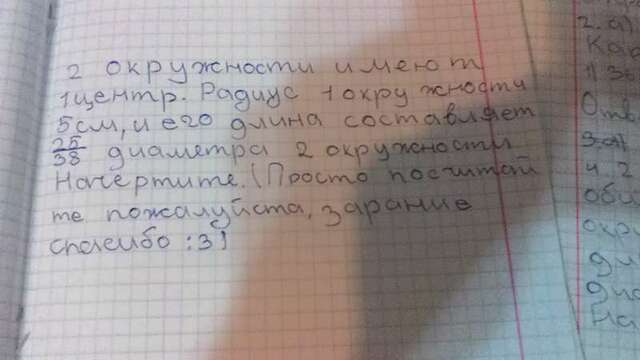 2 окружности имеют
1 центр. Радиус 1 окружности
5 см, и его длина составляет
25/38 диаметра 2 окружности.
Начертите. (Просто посчитай
те пожалуйста, зарание
спасибо :3)
2.а)
Кар
Отв
3.а)
ч. 2
окр
На